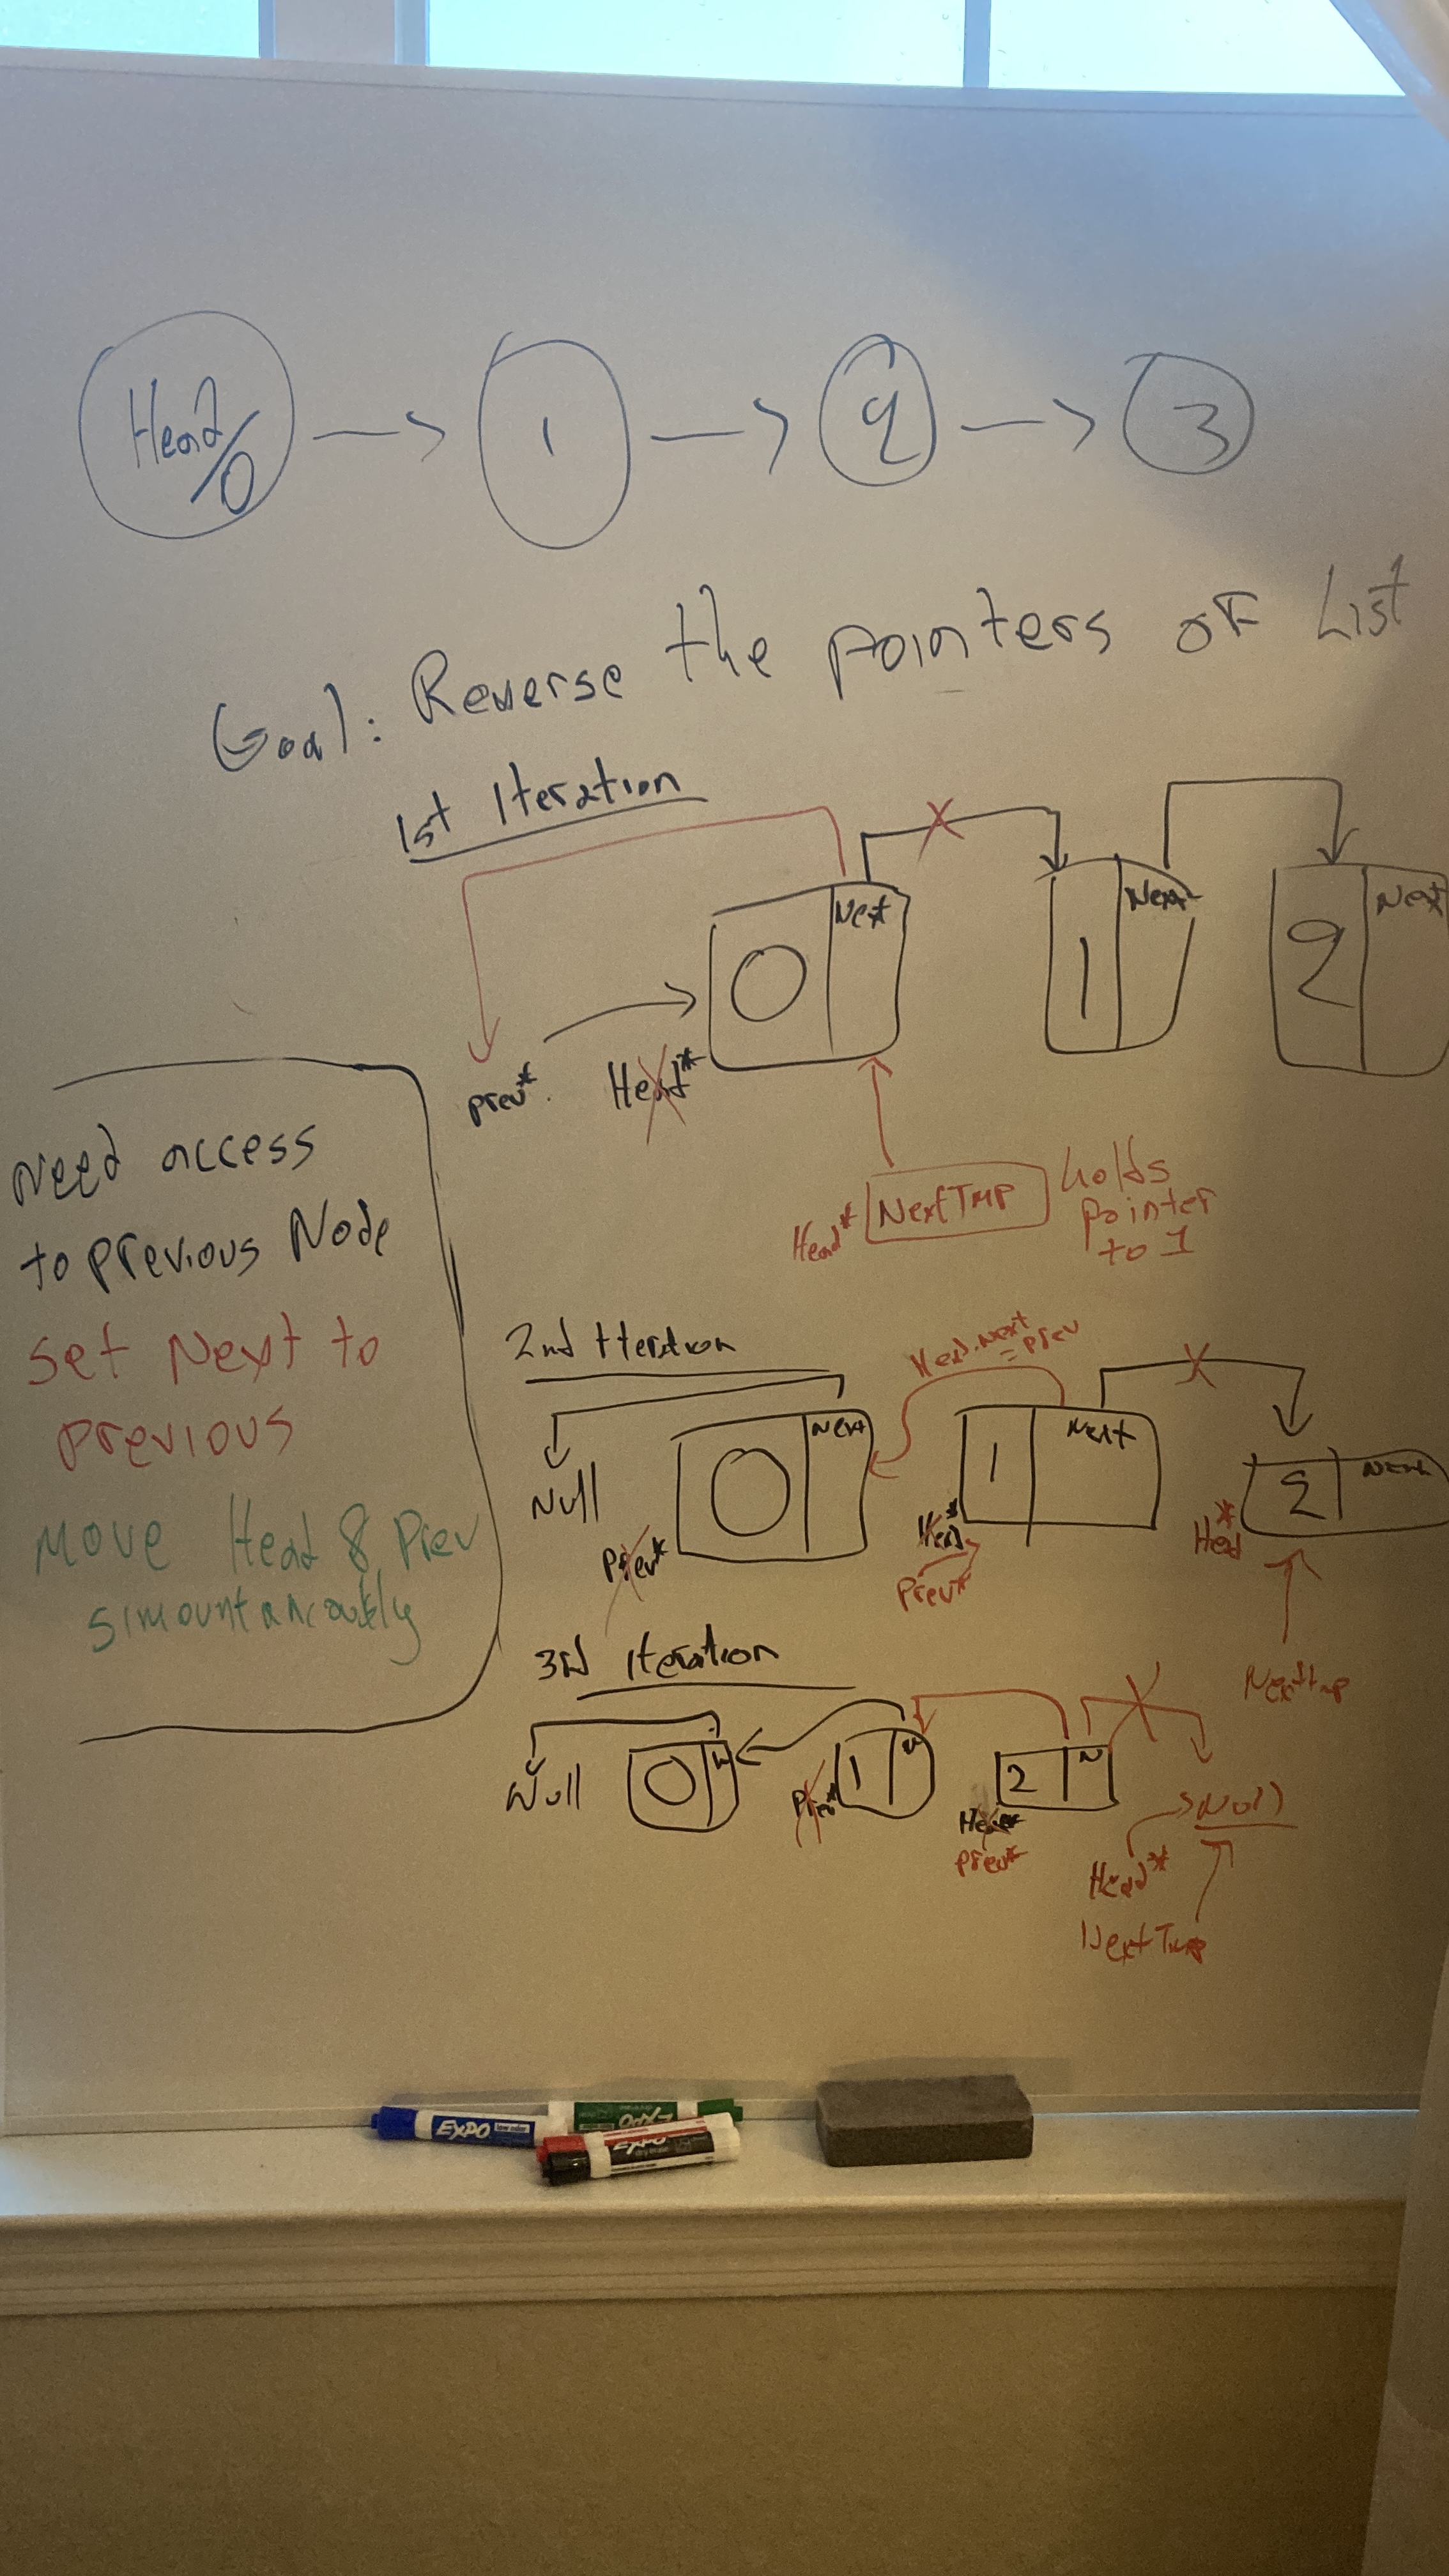 Head/0 -> 1 -> 2 -> 3
Goal: Reverse the pointers of List
1st Iteration
0 Next
1 Next
2 Next
prev*
Head*
Head* NextTmp
holds
pointer
to 1
Need access
to previous Node
Set Next to
previous
Move Head & Prev
simountancoukly
2nd Iteration
Head.Next
= prev
Null
0 Next
1 Next
2 Next
Prev*
Head*
Prev*
Head*
Nexttmp
3rd Iteration
Null
0 N
1 N
2 N
Prev*
Head*
prev*
Null
Head*
NextTmp
EXPO
EXPO
EXPO